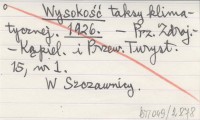 Wysokość taksy klima-
tycznej. 1926. — Prz. Zdroj.-
-Kąpiel. i Przew. Turyst.
15, nr 1.
W Szczawnicy.